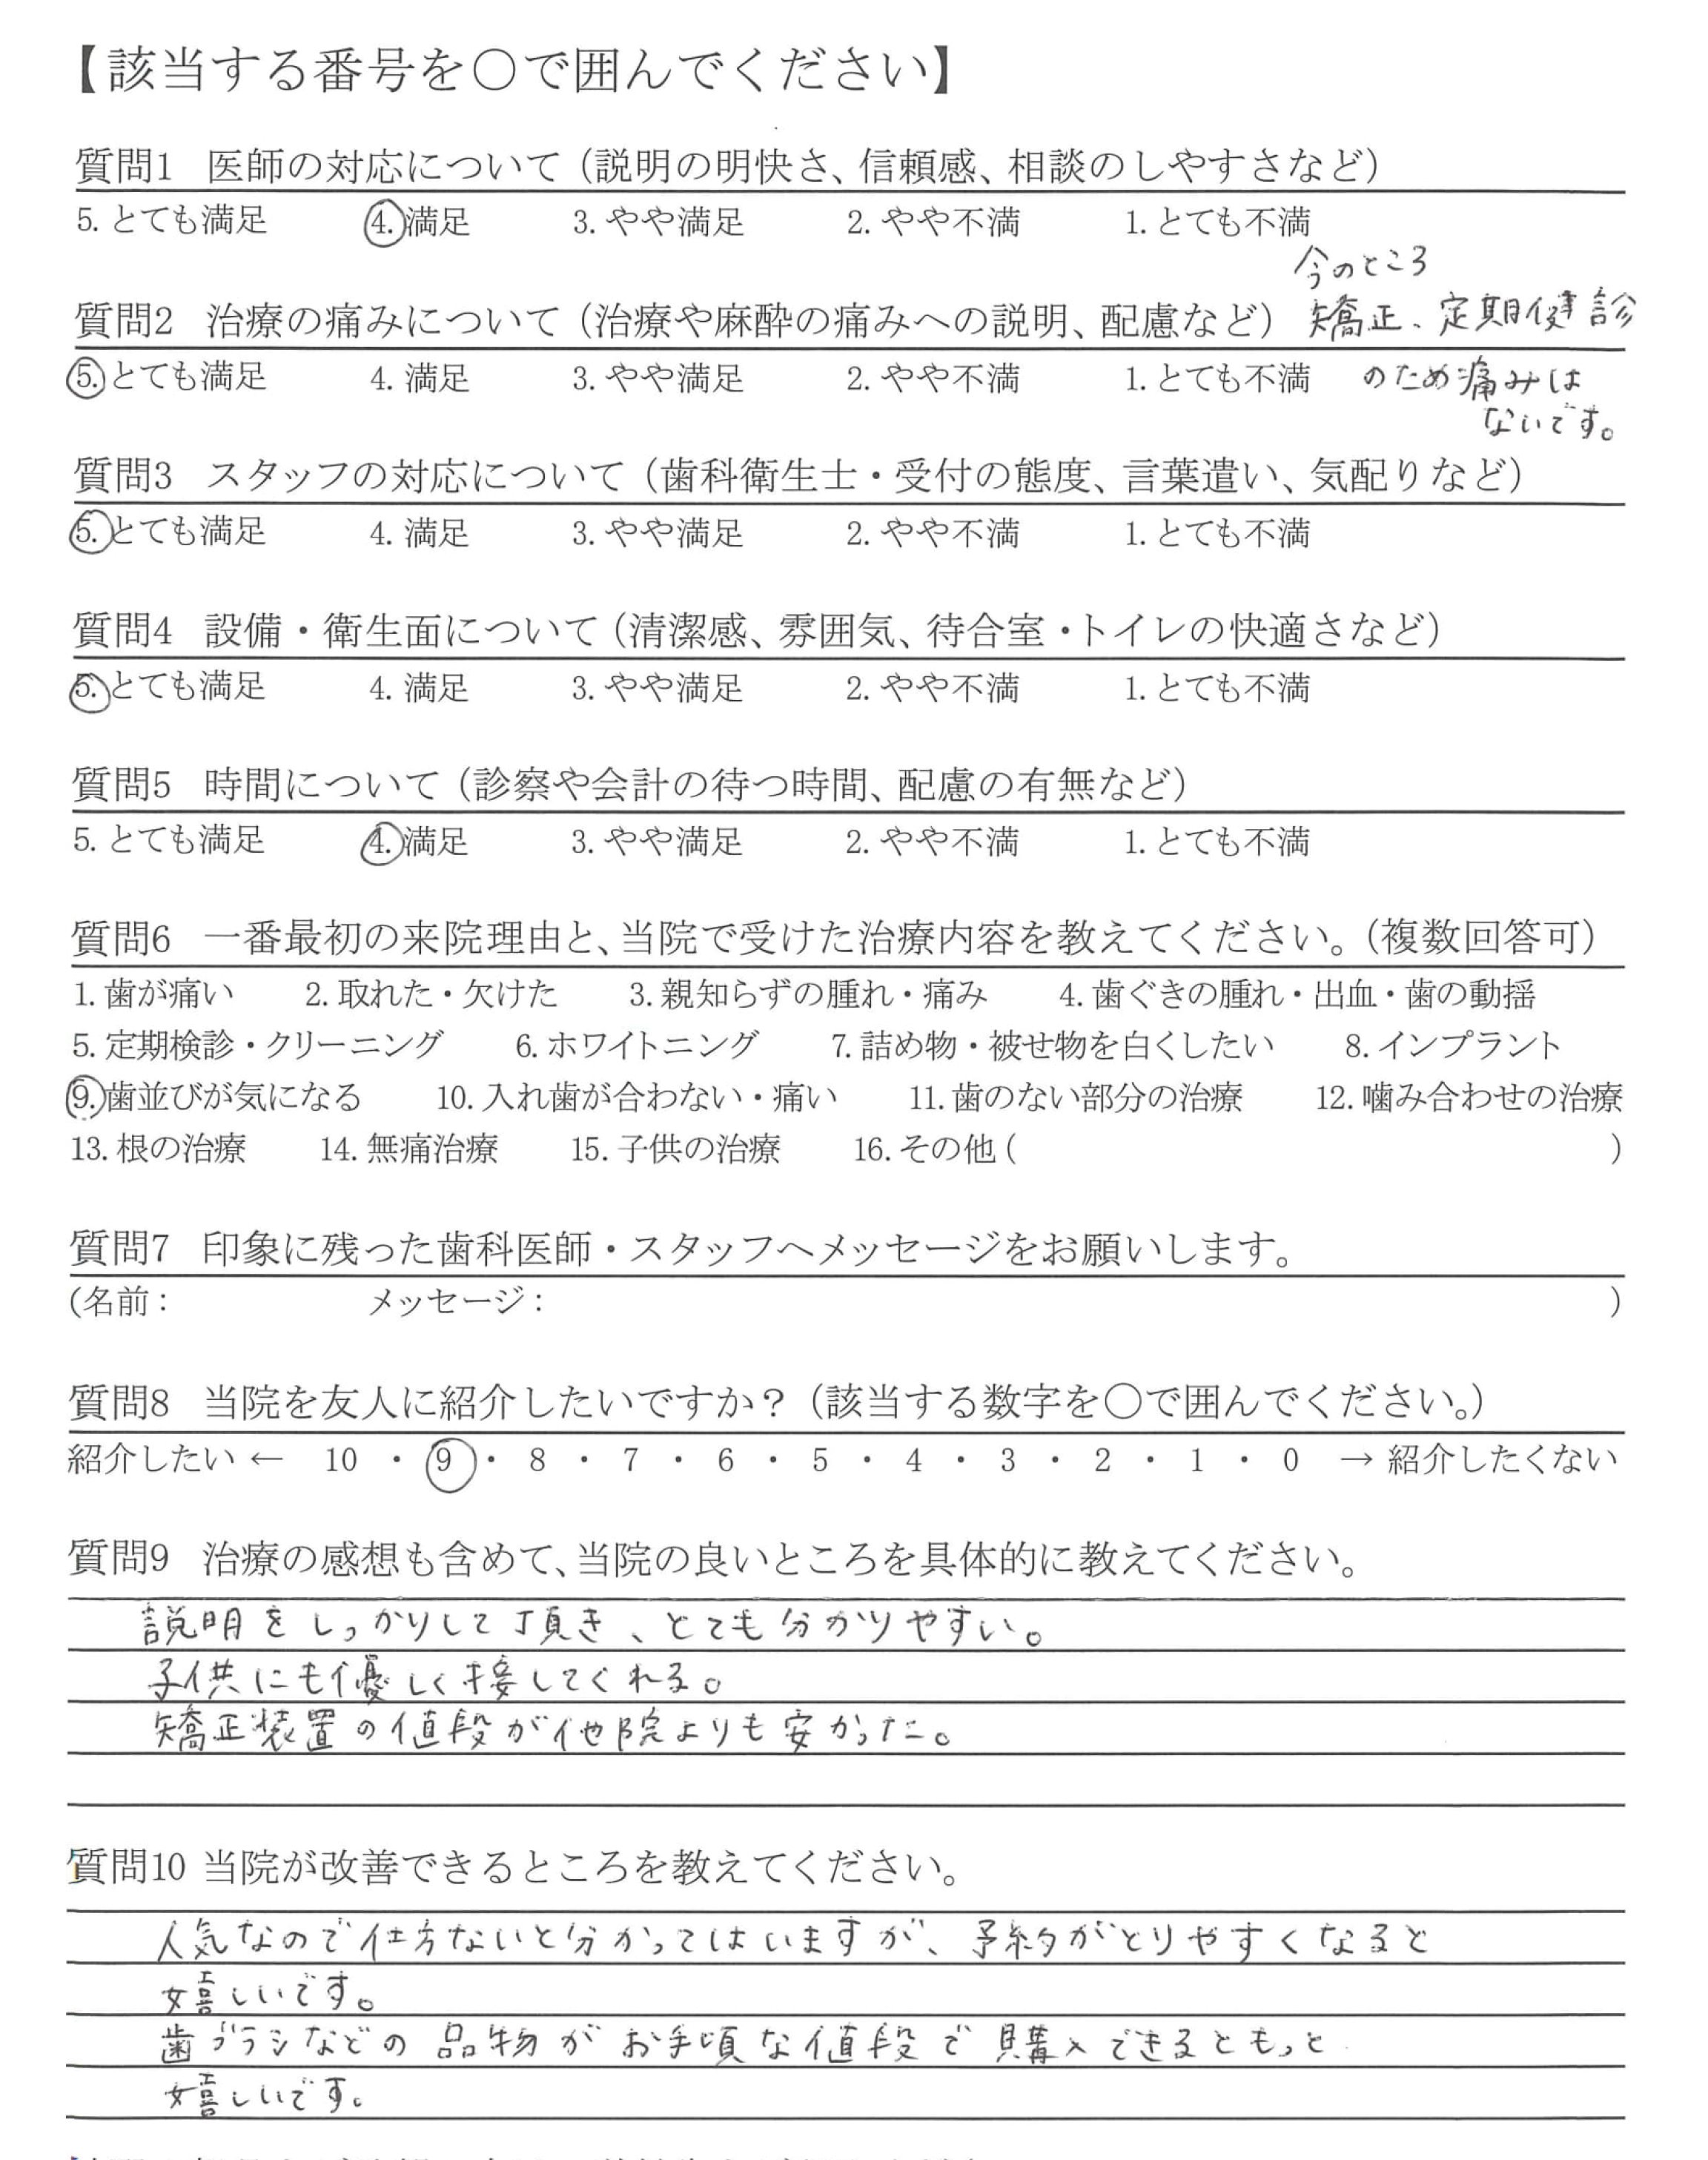 【該当する番号を〇で囲んでください】
質問1 医師の対応について（説明の明快さ、信頼感、相談のしやすさなど）
5. とても満足 4. 満足 3. やや満足 2. やや不満 1. とても不満
今のところ
質問2 治療の痛みについて（治療や麻酔の痛みへの説明、配慮など） 矯正、定期健診
5. とても満足 4. 満足 3. やや満足 2. やや不満 1. とても不満 のため痛みは
ないです。
質問3 スタッフの対応について（歯科衛生士・受付の態度、言葉遣い、気配りなど）
5. とても満足 4. 満足 3. やや満足 2. やや不満 1. とても不満
質問4 設備・衛生面について（清潔感、雰囲気、待合室・トイレの快適さなど）
5. とても満足 4. 満足 3. やや満足 2. やや不満 1. とても不満
質問5 時間について（診察や会計の待つ時間、配慮の有無など）
5. とても満足 4. 満足 3. やや満足 2. やや不満 1. とても不満
質問6 一番最初の来院理由と、当院で受けた治療内容を教えてください。（複数回答可）
1. 歯が痛い 2. 取れた・欠けた 3. 親知らずの腫れ・痛み 4. 歯ぐきの腫れ・出血・歯の動揺
5. 定期検診・クリーニング 6. ホワイトニング 7. 詰め物・被せ物を白くしたい 8. インプラント
9. 歯並びが気になる 10. 入れ歯が合わない・痛い 11. 歯のない部分の治療 12. 噛み合わせの治療
13. 根の治療 14. 無痛治療 15. 子供の治療 16. その他 ( )
質問7 印象に残った歯科医師・スタッフへメッセージをお願いします。
(名前： メッセージ： )
質問8 当院を友人に紹介したいですか？（該当する数字を〇で囲んでください。）
紹介したい ← 10 ・ 9 ・ 8 ・ 7 ・ 6 ・ 5 ・ 4 ・ 3 ・ 2 ・ 1 ・ 0 → 紹介したくない
質問9 治療の感想も含めて、当院の良いところを具体的に教えてください。
説明をしっかりして頂き、とても分かりやすい。
子供にも優しく接してくれる。
矯正装置の値段が他院よりも安かった。
質問10 当院が改善できるところを教えてください。
人気なので仕方ないと分かってはいますが、予約がとりやすくなると
嬉しいです。
歯ブラシなどの品物がお手頃な値段で購入できるともっと
嬉しいです。